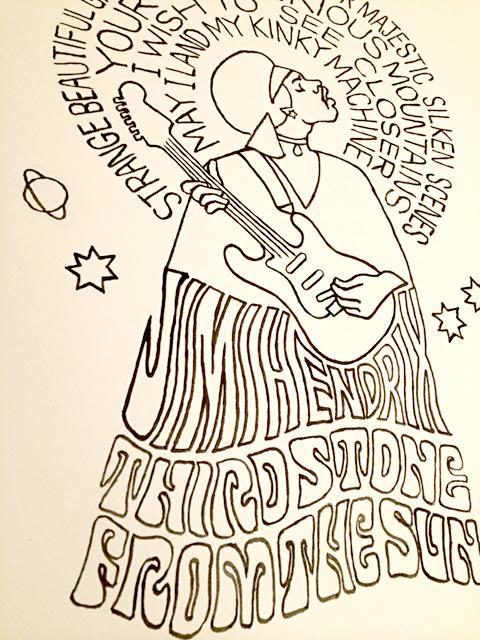 STRANGE BEAUTIFUL MAJESTIC SILKEN SCENES
YOUR MOUNTAINS
I WISH TO SEE CLOSER
MAY I LAND MY KINKY MACHINE
JIMI HENDRIX
THIRD STONE
FROM THE SUN